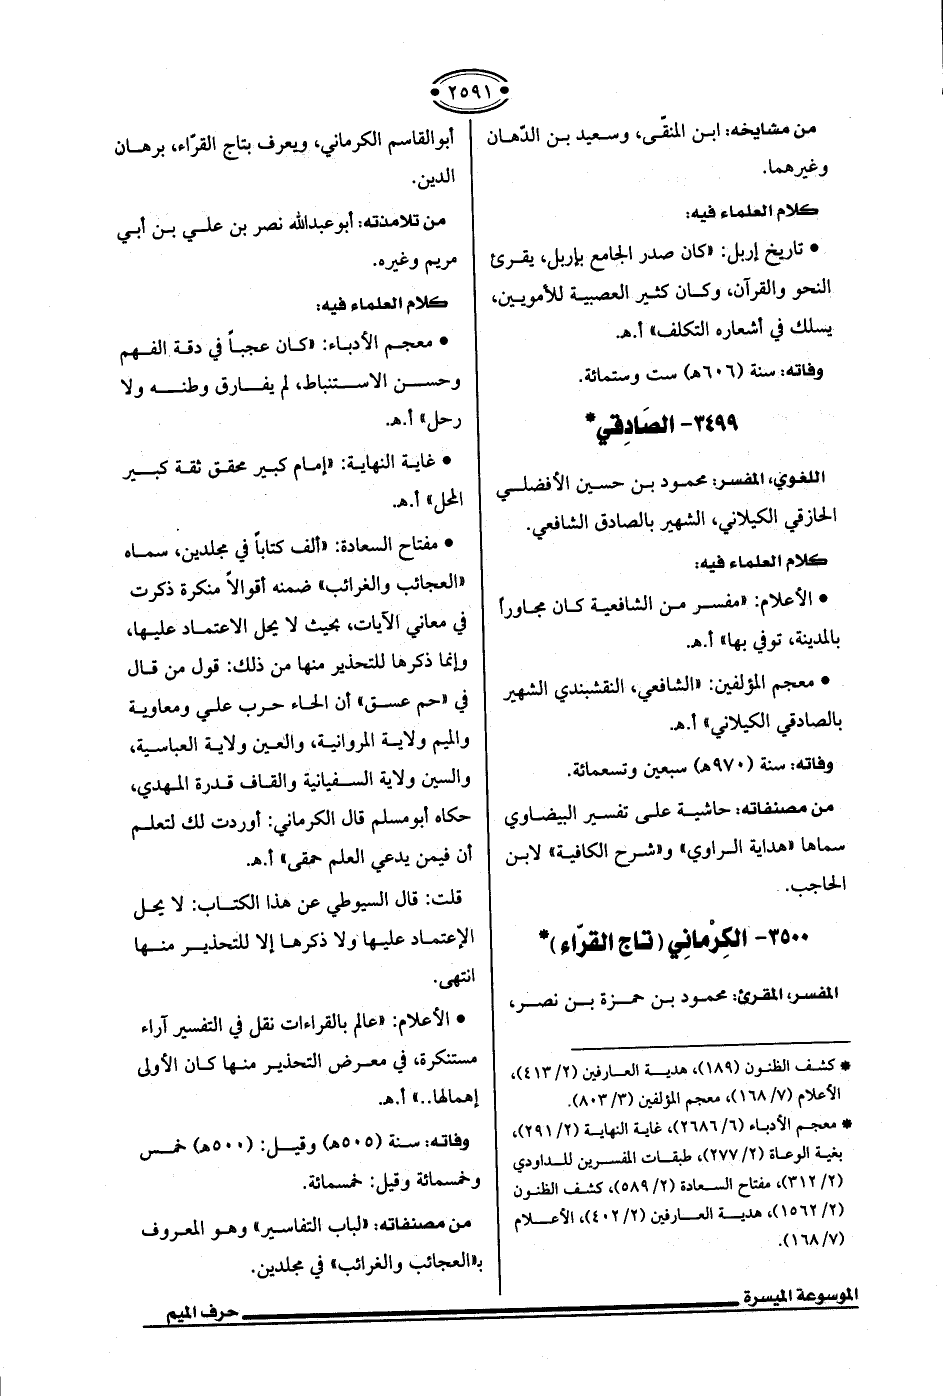 ٢٥٩١
من مشايخه: ابن المنقّى، وسعيد بن الدّهان
وغيرهما.
كلام العلماء فيه:
• تاريخ إربل: «كان صدر الجامع بإربل، يقرئ
النحو والقرآن، وكان كثير العصبية للأمويين،
يسلك في أشعاره التكلف» أ.هـ.
وفاته: سنة (٦٠٦هـ) ست وستمائة.
٣٤٩٩- الصَادِقي*
اللغوي، المفسر: محمود بن حسين الأفضلي
الحازقي الكيلاني، الشهير بالصادق الشافعي.
كلام العلماء فيه:
• الأعلام: «مفسر من الشافعية كان مجاوراً
بالمدينة، توفي بها» أ.هـ.
• معجم المؤلفين: «الشافعي، النقشبندي الشهير
بالصادقي الكيلاني» أ.هـ.
وفاته: سنة (٩٧٠هـ) سبعين وتسعمائة.
من مصنفاته: حاشية على تفسير البيضاوي
سماها «هداية الراوي» و«شرح الكافية» لابن
الحاجب.
٣٥٠٠- الكِرْماني (تاج القرّاء)*
المفسر، المقرئ: محمود بن حمزة بن نصر،
* كشف الظنون (١٨٩)، هدية العارفين (٤١٣/٢)،
الأعلام (١٦٨/٧)، معجم المؤلفين (٨٠٣/٣).
* معجم الأدباء (٢٦٨٦/٦)، غاية النهاية (٢٩١/٢)،
بغية الوعاة (٢٧٧/٢)، طبقات المفسرين للداودي
(٣١٢/٢)، مفتاح السعادة (٥٨٩/٢)، كشف الظنون
(١٥٦٢/٢)، هدية العارفين (٤٠٢/٢)، الأعلام
(١٦٨/٧).
أبو القاسم الكرماني، ويعرف بتاج القرّاء، برهان
الدين.
من تلامذته: أبو عبدالله نصر بن علي بن أبي
مريم وغيره.
كلام العلماء فيه:
• معجم الأدباء: «كان عجباً في دقة الفهم
وحسن الاستنباط، لم يفارق وطنه ولا
رحل» أ.هـ.
• غاية النهاية: «إمام كبير محقق ثقة كبير
المحل» أ.هـ.
• مفتاح السعادة: «ألف كتاباً في مجلدين، سماه
«العجائب والغرائب» ضمنه أقوالاً منكرة ذكرت
في معاني الآيات، بحيث لا يحل الاعتماد عليها،
وإنما ذكرها للتحذير منها من ذلك: قول من قال
في «حم عسق» أن الحاء حرب علي ومعاوية
والميم ولاية المروانية، والعين ولاية العباسية،
والسين ولاية السفيانية والقاف قدرة المهدي،
حكاه أبو مسلم قال الكرماني: أوردت لك لتعلم
أن فيمن يدعي العلم حمقى» أ.هـ.
قلت: قال السيوطي عن هذا الكتاب: لا يحل
الإعتماد عليها ولا ذكرها إلا للتحذير منها
انتهى.
• الأعلام: «عالم بالقراءات نقل في التفسير آراء
مستنكرة، في معرض التحذير منها كان الأولى
إهمالها..» أ.هـ.
وفاته: سنة (٥٠٥هـ) وقيل: (٥٠٠هـ) خمس
وخمسمائة وقيل: خمسمائة.
من مصنفاته: «لباب التفاسير» وهو المعروف
بـ«العجائب والغرائب» في مجلدين.
الموسوعة الميسرة
حرف الميم